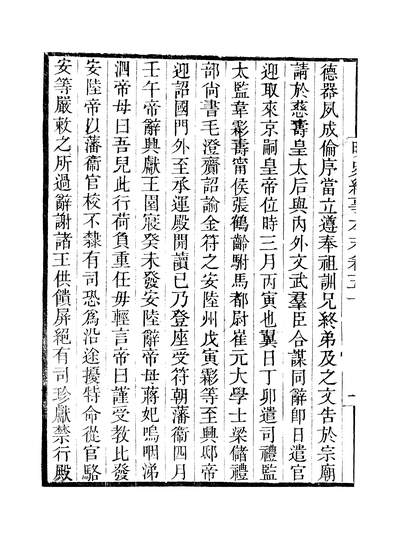 德器夙成倫序當立遵奉祖訓兄終弟及之文告於宗廟
請於慈壽皇太后與內外文武羣臣合謀同辭卽日遣官
迎取來京嗣皇帝位時三月丙寅也翼日丁卯遣司禮監
太監韋霦壽甯侯張鶴齡駙馬都尉崔元大學士梁儲禮
部尙書毛澄齎詔諭金符之安陸州戊寅霦等至興邸帝
迎詔國門外至承運殿開讀已乃登座受符朝藩衞四月
壬午帝辭興獻王園寢癸未發安陸辭帝母蔣妃嗚咽涕
泗帝母曰吾兒此行荷負重任毋輕言帝曰謹受教比發
安陸帝以藩衞官校不隸有司恐爲沿途擾特命從官駱
安等嚴敕之所過辭謝諸王供饋屏絕有司珍獻禁行殿
明史紀事本末卷五十